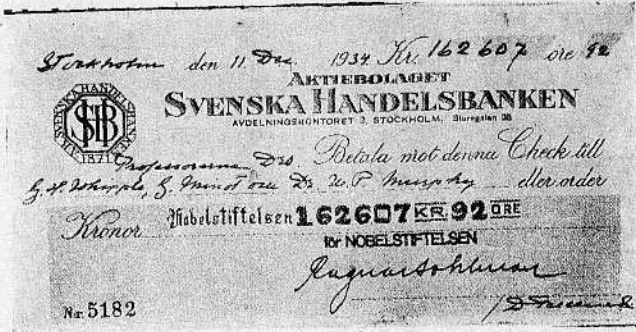 Stockholm den 11 Dec. 1934 Kr. 162 607 öre 92
AKTIEBOLAGET
SVENSKA HANDELSBANKEN
AVDELNINGSKONTORET 3, STOCKHOLM. Sturegatan 38
SHB
1871
Professorerna Drs. Betala mot denna Check till
G. H. Whipple, G. Minot och Dr. W. P. Murphy eller order
Kronor Nobelstiftelsen 162607 KR. 92 ÖRE
för NOBELSTIFTELSEN
Ragnar Sohlman
Nr. 5182